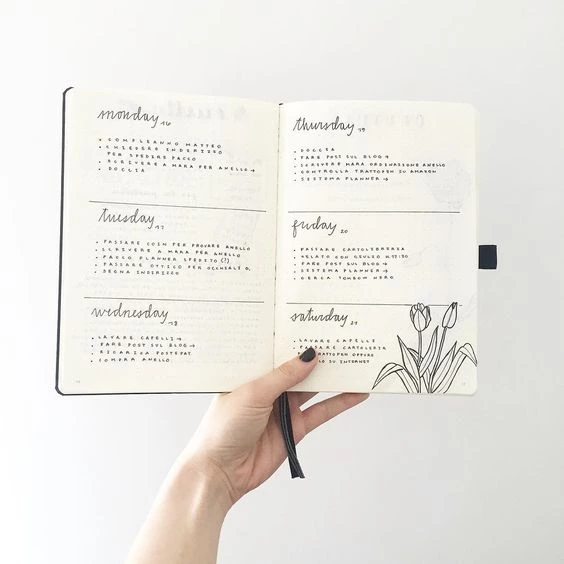 monday 16
• COMPLEANNO MATTEO
• CHIEDERE INDIRIZZO
PER SPEDIRE PACCO
• SCRIVERE A MARA PER ANELLO →
• DOCCIA
tuesday 17
• PASSARE COIN PER PROVARE ANELLO
• SCRIVERE A MARA PER ANELLO
• PACCO PLANNER SPEDITO (?)
• PASSARE OTTICO PER OCCHIALE
INDIRIZZO
wednesday 18
• LAVARE CAPELLI →
• FARE POST SUL BLOG →
• RICARICA POSTEPAY
• COMPRA ANELLO
thursday 19
• DOCCIA
• FARE POST SUL BLOG →
• SCRIVERE MARA ORDINAZIONE ANELLO
• CONTROLLA TRATTOPEN SU AMAZON
• SISTEMA PLANNER →
friday 20
• PASSARE CARTOLERIA
• GELATO CON GIULIO
• FARE POST SUL BLOG →
• SISTEMA PLANNER →
• CERCA TOMBOW NERO
saturday 21
• LAVARE CAPELLI
PASSARE CARTOLERIA
TRATTOPEN OPPURE
SU INTERNET